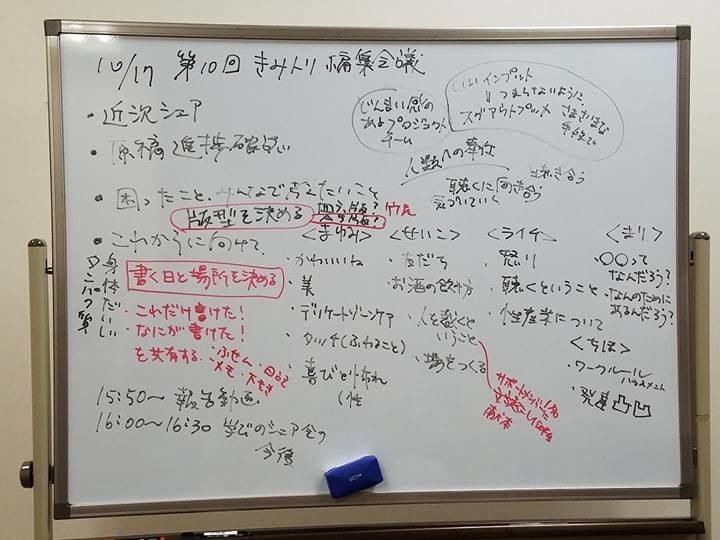 10/17 第10回 きみトリ 編集会議
・近況シェア
・原稿進捗確認
・困ったこと、みんなで考えたいこと
版型を決める
・これからに向けて
身体
だいじ
書く日と場所を決める
・これだけ書けた!
・なにが書けた!
を共有する
・ふせん・日記
・メモ・下書き
15:50〜 報告動画
16:00〜16:30 学びのシェア会の
今後
じんまい式の
およプロジェクト
チーム
インプット
つまらないように、
スグアウトプット
さまざまな
手段で
人数への奉仕
聴き合う
聴くに向き合う
気づいていく
<まゆみ>
・かわいいね
・美
・デリケートゾーンケア
・タッチ(ふれること)
・喜びと怖れ
(性
<せいこ>
・友だち
・お酒の飲み方
・人を裁くと
いうこと
・場をつくる
<ライチ>
・怒り
・聴くということ
・性産業について
<まり>
・〇〇って
なんだろう?
・なんのために
あるんだろう?
<ちほ>
・ワークルール
ハラスメント
・発達凸凹